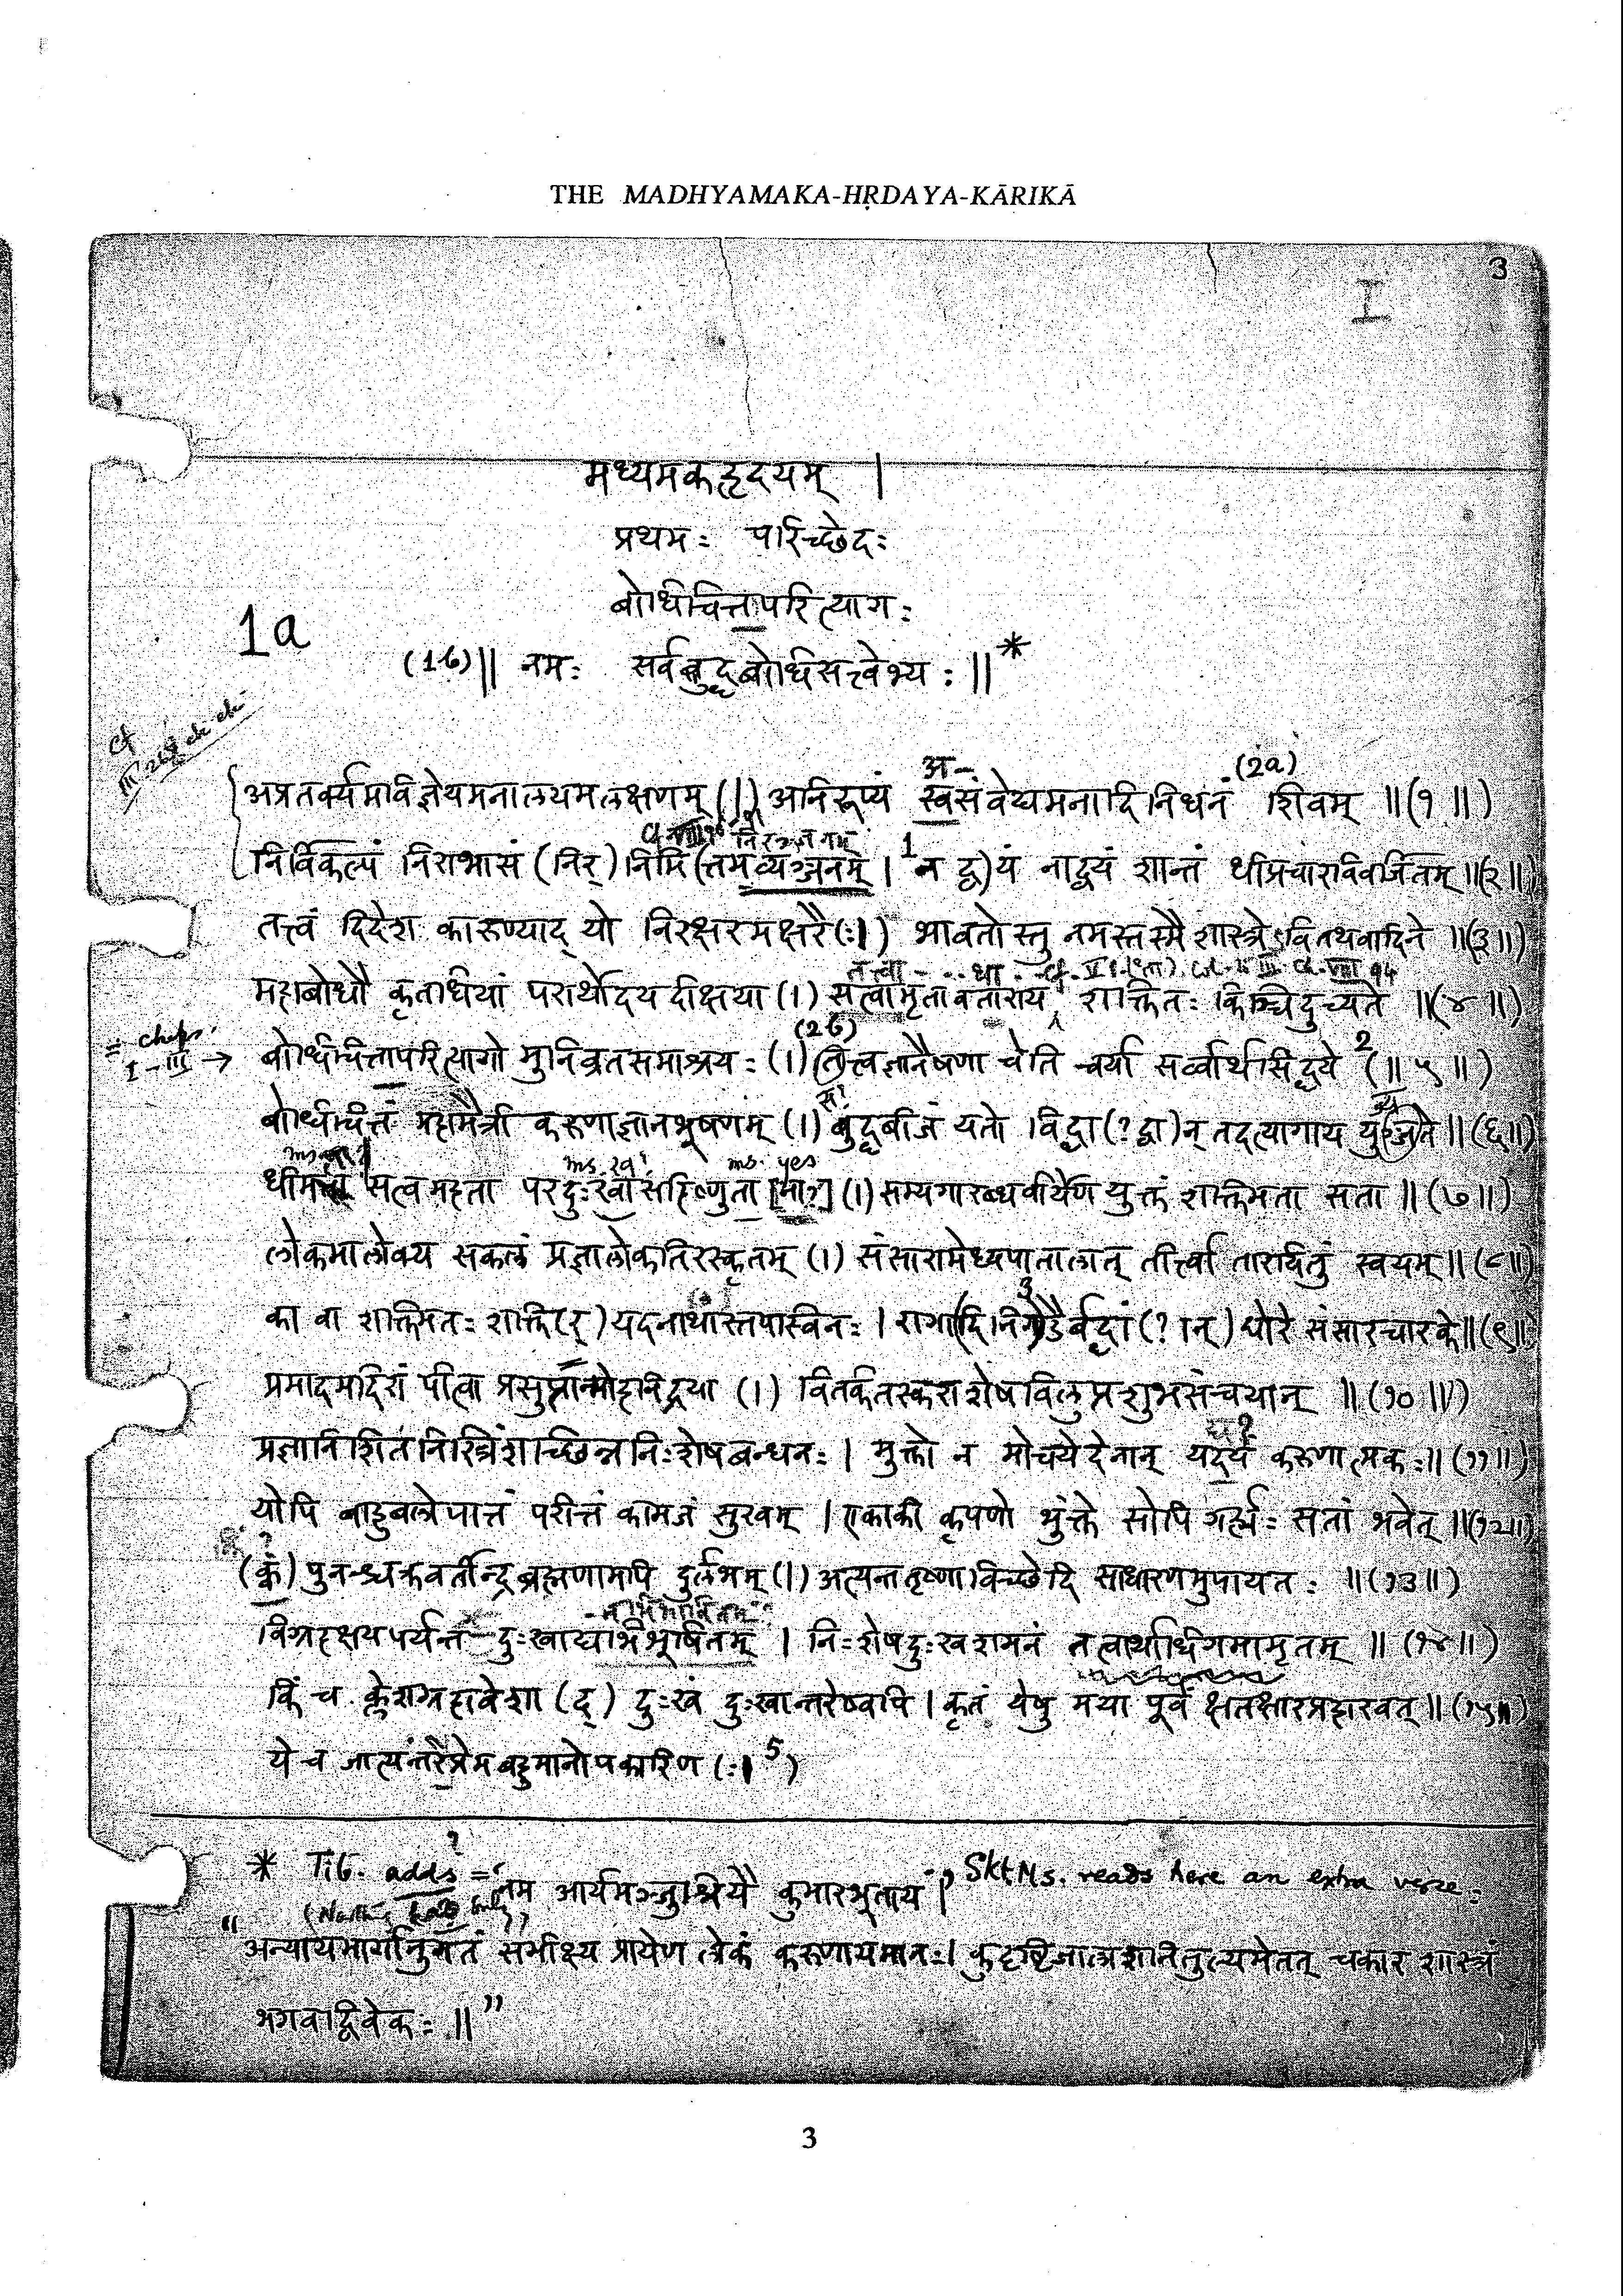 THE MADHYAMAKA-HṚDAYA-KĀRIKĀ
3
I
मध्यमकहृदयम् |
प्रथमः परिच्छेदः
बोधिचित्तापरित्यागः
1a
(1b) || नमः सर्वबुद्धबोधिसत्त्वेभ्यः || *
cf
अ- (2a)
अप्रतर्क्यमविज्ञेयमनालयमलक्षणम् (|) अनिरूप्यं स्वसंवेद्यमनादिनिधनं शिवम् || (१ ||)
निर्विकल्पं निराभासं (निर्) निमि (त्तमव्यञ्जनम् | 1 न द्व) यं नाद्वयं शान्तं धीप्रचारविवर्जितम् || (२ ||)
तत्त्वं दिदेश कारुण्याद् यो निरक्षरमक्षरै (ः|) भावतोस्तु नमस्तस्मै शास्त्रेऽवितथवादिने || (३ ||)
महाबोधौ कृतधियां परार्थोदयदीक्षया (|) सत्वामृतावताराय शक्तितः किञ्चिदुच्यते || (४ ||)
= chaps. I-III →
(2b)
बोधिचित्तापरित्यागो मुनिव्रतसमाश्रयः (|) तत्त्वज्ञानैषणा चेति चर्या सर्व्वार्थसिद्धये 2 (|| ५ ||)
बोधिचित्तं महामैत्री करुणाज्ञानभूषणंम् (|) बुद्धबीजं यतो विद्वा (? द्वा) न् तदत्यागाय युज्यते || (६ ||)
ms. yes
सत्वमहता परदुःखासहिष्णुता (|) सम्यगारब्धवीर्येण युक्तं शक्तिमता सता || (७ ||)
लोकमालोक्य सकलं प्रज्ञालोकतिरस्कृतम् (|) संसारामेध्यपातालात् तीर्त्वा तारयितुं स्वयम् || (८ ||)
का वा शक्तिमतः शक्ति (र्) यदनाथांस्तपस्विनः | रागा (दि 3 निग) डैर्बद्धां (? ान्) घोरे संसारचारके || (९ ||)
प्रमादमदिरां पीत्वा प्रसुप्तान्मोहनिद्रया (|) वितर्कतस्कराशेषविलुप्तशुभसंचयान् || (१० ||)
प्रज्ञानिशितनिस्त्रिंशच्छिन्ननिःशेषबन्धनः | मुक्तो न मोचयेदेनान् यद्यं करुणात्मकः || (११ ||)
योपि बाहुबलोपात्तं परीत्तं कामजं सुखम् | एकाकी कृपणो भुंक्ते सोपि गर्ह्यः सतां भवेत् || (१२ ||)
(कं) पुनश्चक्रवर्तीन्द्रब्रह्मणामपि दुर्लभम् (|) अत्यन्ततृष्णाविच्छेदि साधारणमुपायतः || (१३ ||)
विग्रहक्षयपर्यन्त दुःखाद्यभिभूषितम् | निःशेषदुःखशमनं तत्वार्थाधिगमामृतम् || (१४ ||)
किं च क्लेशग्रहावेशा (द्) दुःखं दुःखान्तरेष्वपि | कृतं येषु मया पूर्वं क्षतक्षारप्रहारवत् || (१५ ||)
ये च जात्यंन्तरे प्रेमबहुमानोपकारिण (ः| 5)
* Tib. adds = 'नम आर्यमञ्जुश्रियै कुमारभूताय |' Skt Ms. reads here an extra verse :
"अन्यायमार्गानुगतं समीक्ष्य प्रायेण लोकं करुणायमानः | कुदृष्टिजालाशनितुल्यमेतत् चकार शास्त्रं
भगवद्विवेकः ||"
3